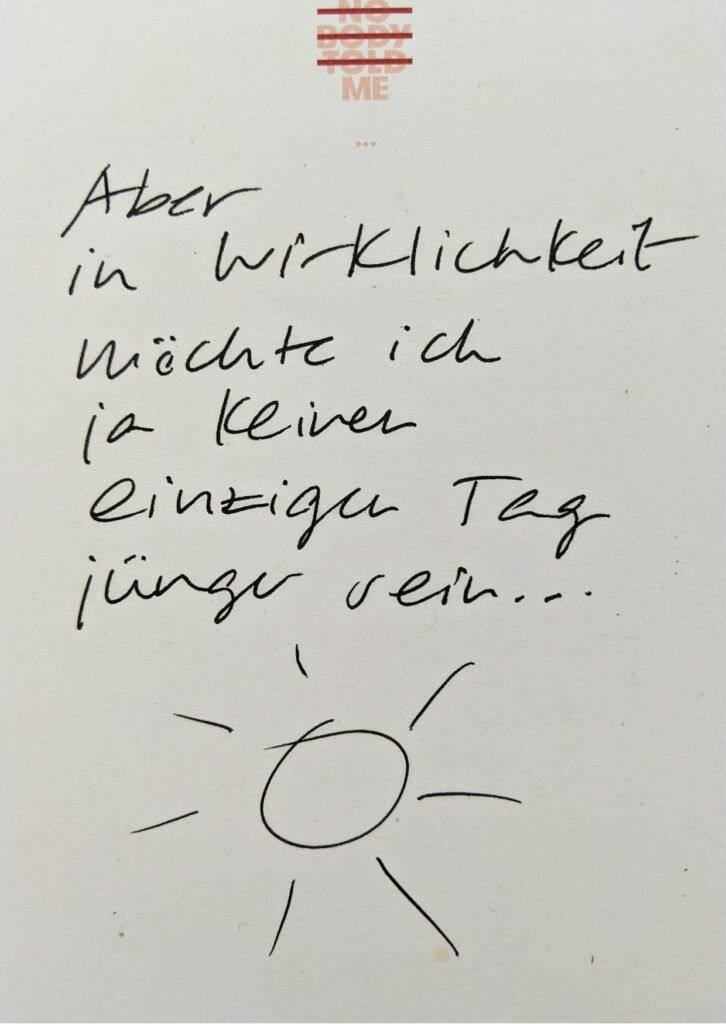 NO
BODY
TOLD
ME
...
Aber
in Wirklichkeit
möchte ich
ja keinen
einzigen Tag
jünger sein...